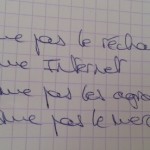 me pas le récha
me Internet
me pas les agro
me pas le merc